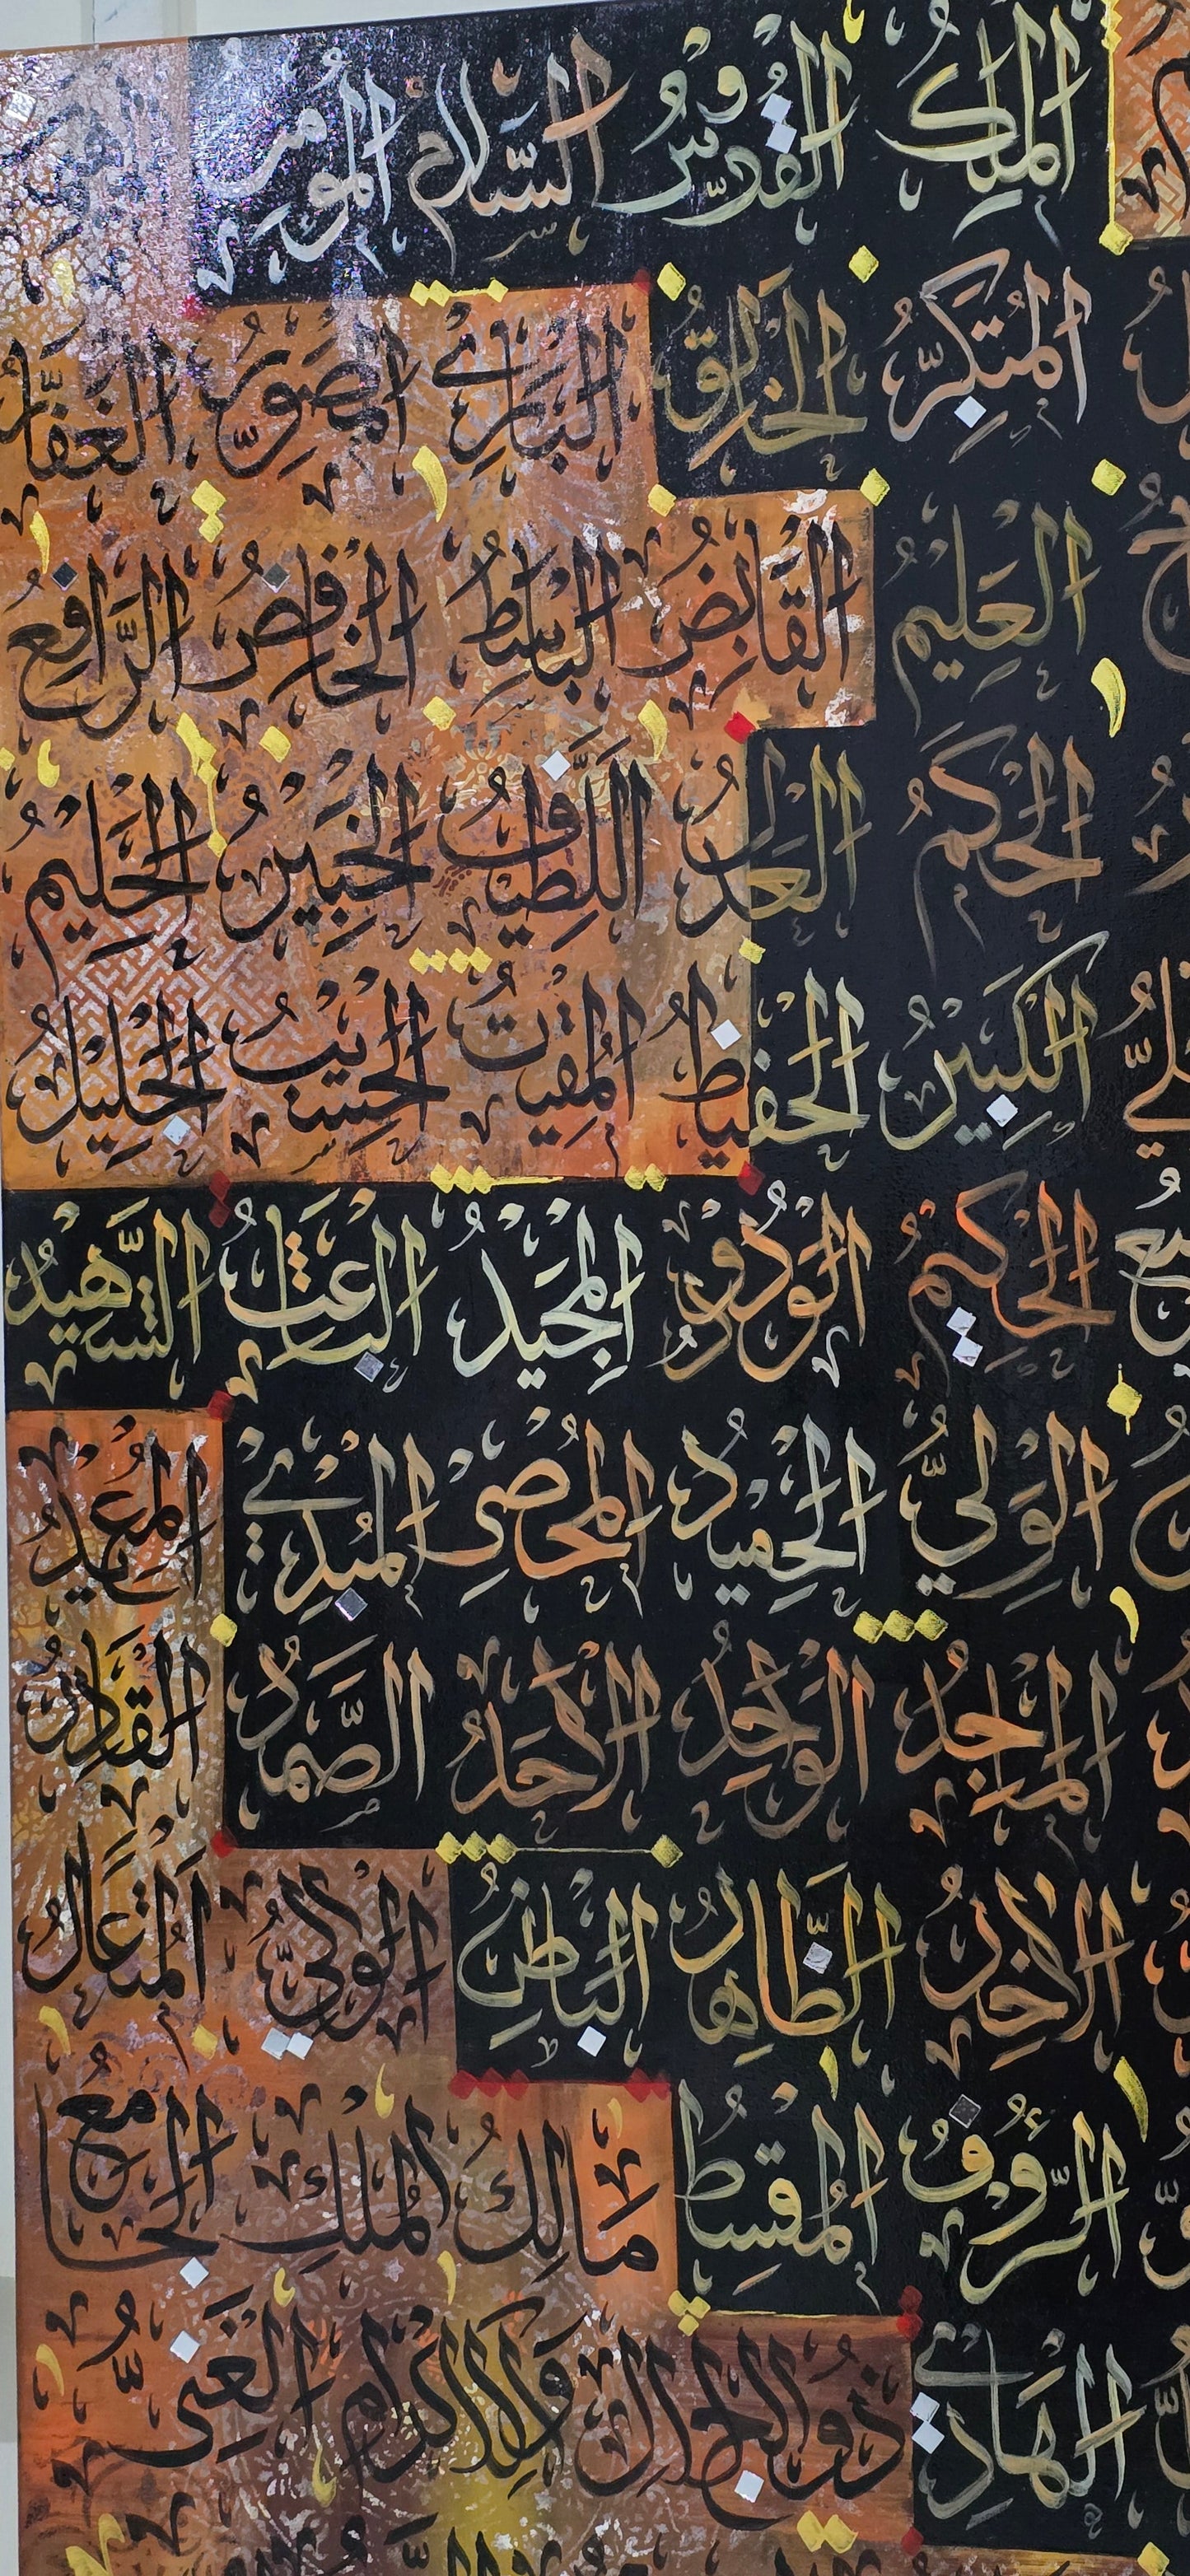 الْمَلِكُ الْقُدُّوْسُ السَّلَامُ الْمُؤْمِنُ
الْمُتَكَبِّرُ الْخَالِقُ الْبَارِئُ الْمُصَوِّرُ الْغَفَّارُ
الْعَلِيْمُ الْقَابِضُ الْبَاسِطُ الْخَافِضُ الرَّافِعُ
الْحَكَمُ الْعَدْلُ اللَّطِيْفُ الْخَبِيْرُ الْحَلِيْمُ
الْكَبِيْرُ الْحَفِيْظُ الْمُقِيْتُ الْحَسِيْبُ الْجَلِيْلُ
الْحَكِيْمُ الْوَدُوْدُ الْمَجِيْدُ الْبَاعِثُ الشَّهِيْدُ
الْوَلِيُّ الْحَمِيْدُ الْمُحْصِى الْمُبْدِئُ الْمُعِيْدُ
الْمَاجِدُ الْوَاحِدُ الْأَحَدُ الصَّمَدُ الْقَادِرُ
الْآخِرُ الظَّاهِرُ الْبَاطِنُ الْوَالِيُ الْمُتَعَالُ
الرَّؤُوْفُ الْمُقْسِطُ مَالِكُ الْمُلْكِ الْجَامِعُ
الْهَادِيْ ذُو الْجَلَالِ وَالْاِكْرَامِ الْغَنِىُّ